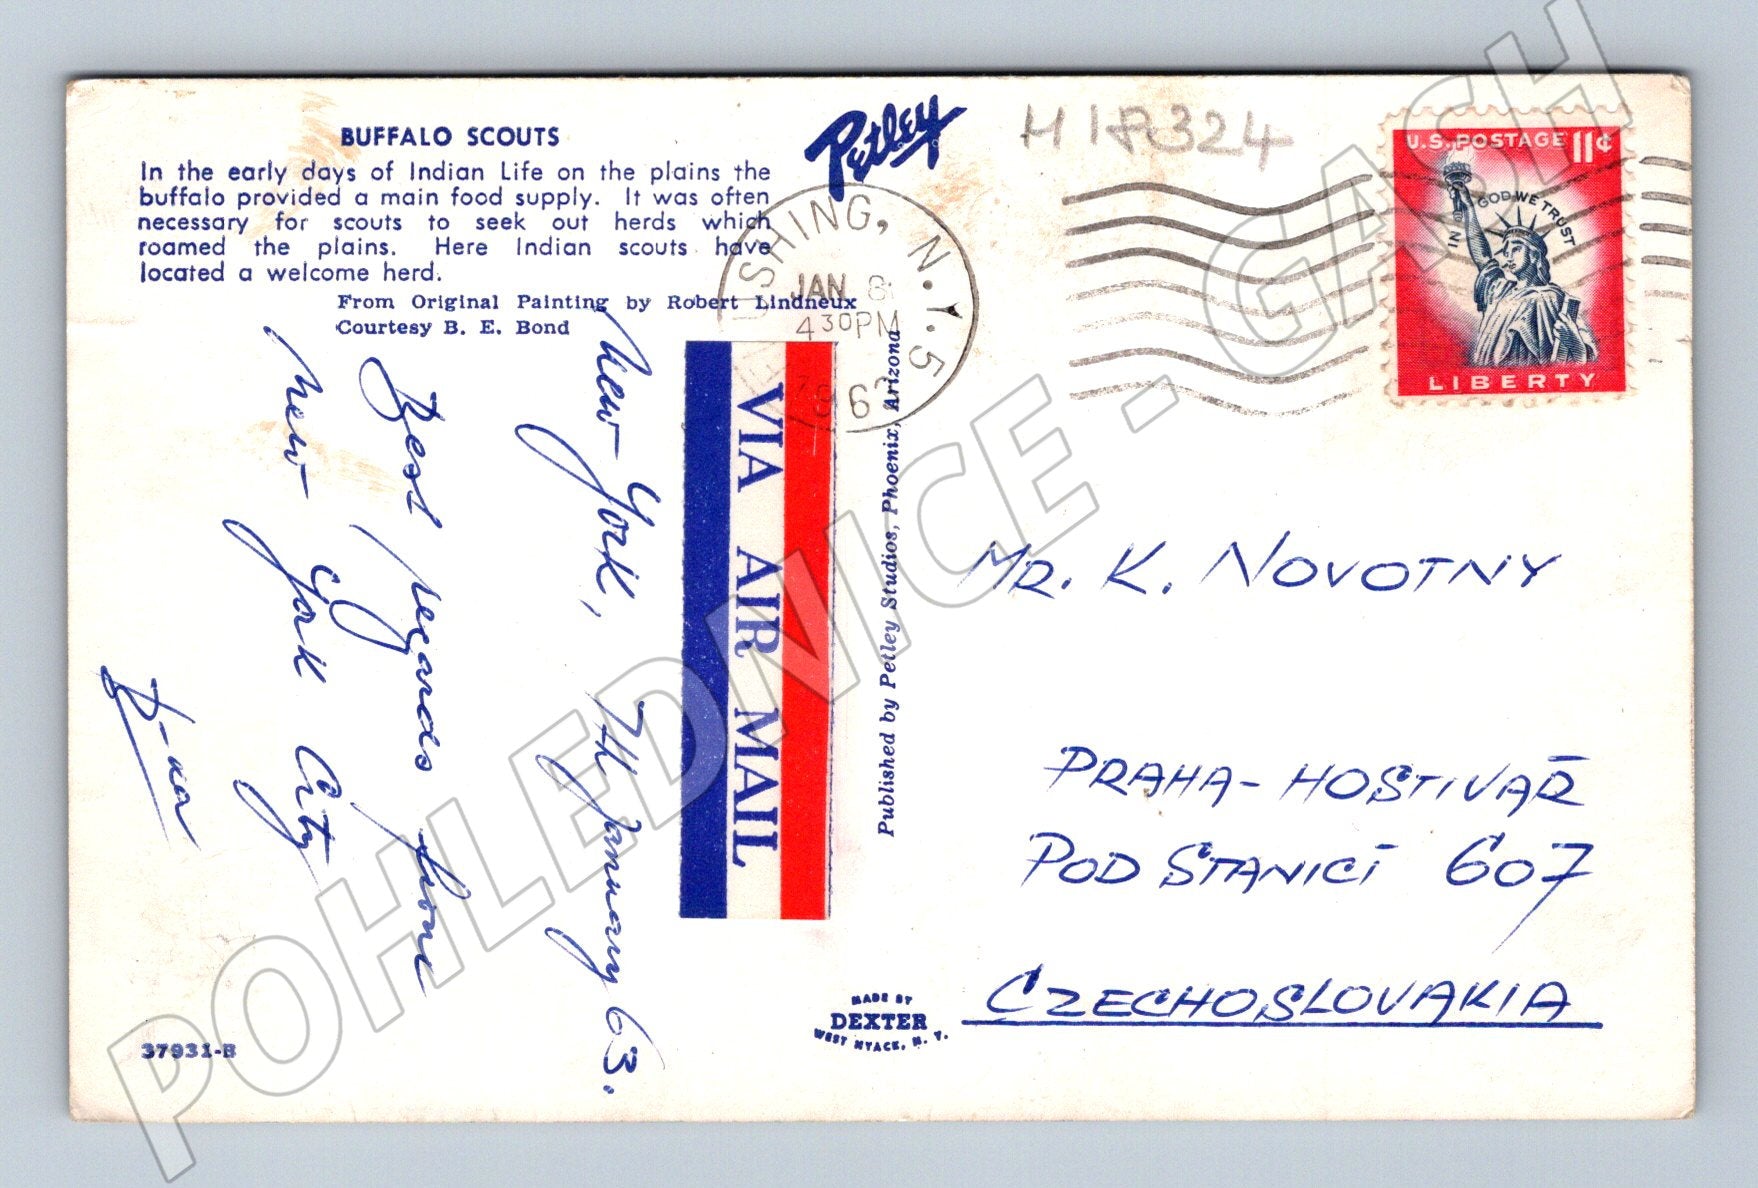 BUFFALO SCOUTS
In the early days of Indian Life on the plains the
buffalo provided a main food supply. It was often
necessary for scouts to seek out herds which
roamed the plains. Here Indian scouts have
located a welcome herd.
From Original Painting by Robert Lindneux
Courtesy B. E. Bond
Petley
H 18324
USHING, N.Y. 5
JAN 8
4 30 PM
196
U.S. POSTAGE 11¢
IN GOD WE TRUST
LIBERTY
VIA AIR MAIL
New York, 7th January 63.
Best regards from
New York City
Published by Petley Studios, Phoenix, Arizona
MR. K. NOVOTNY
PRAHA-HOSTIVAŘ
POD STANICÍ 607
CZECHOSLOVAKIA
MADE BY
DEXTER
WEST NYACK, N. Y.
37931-B
POHLEDNICE - GASH